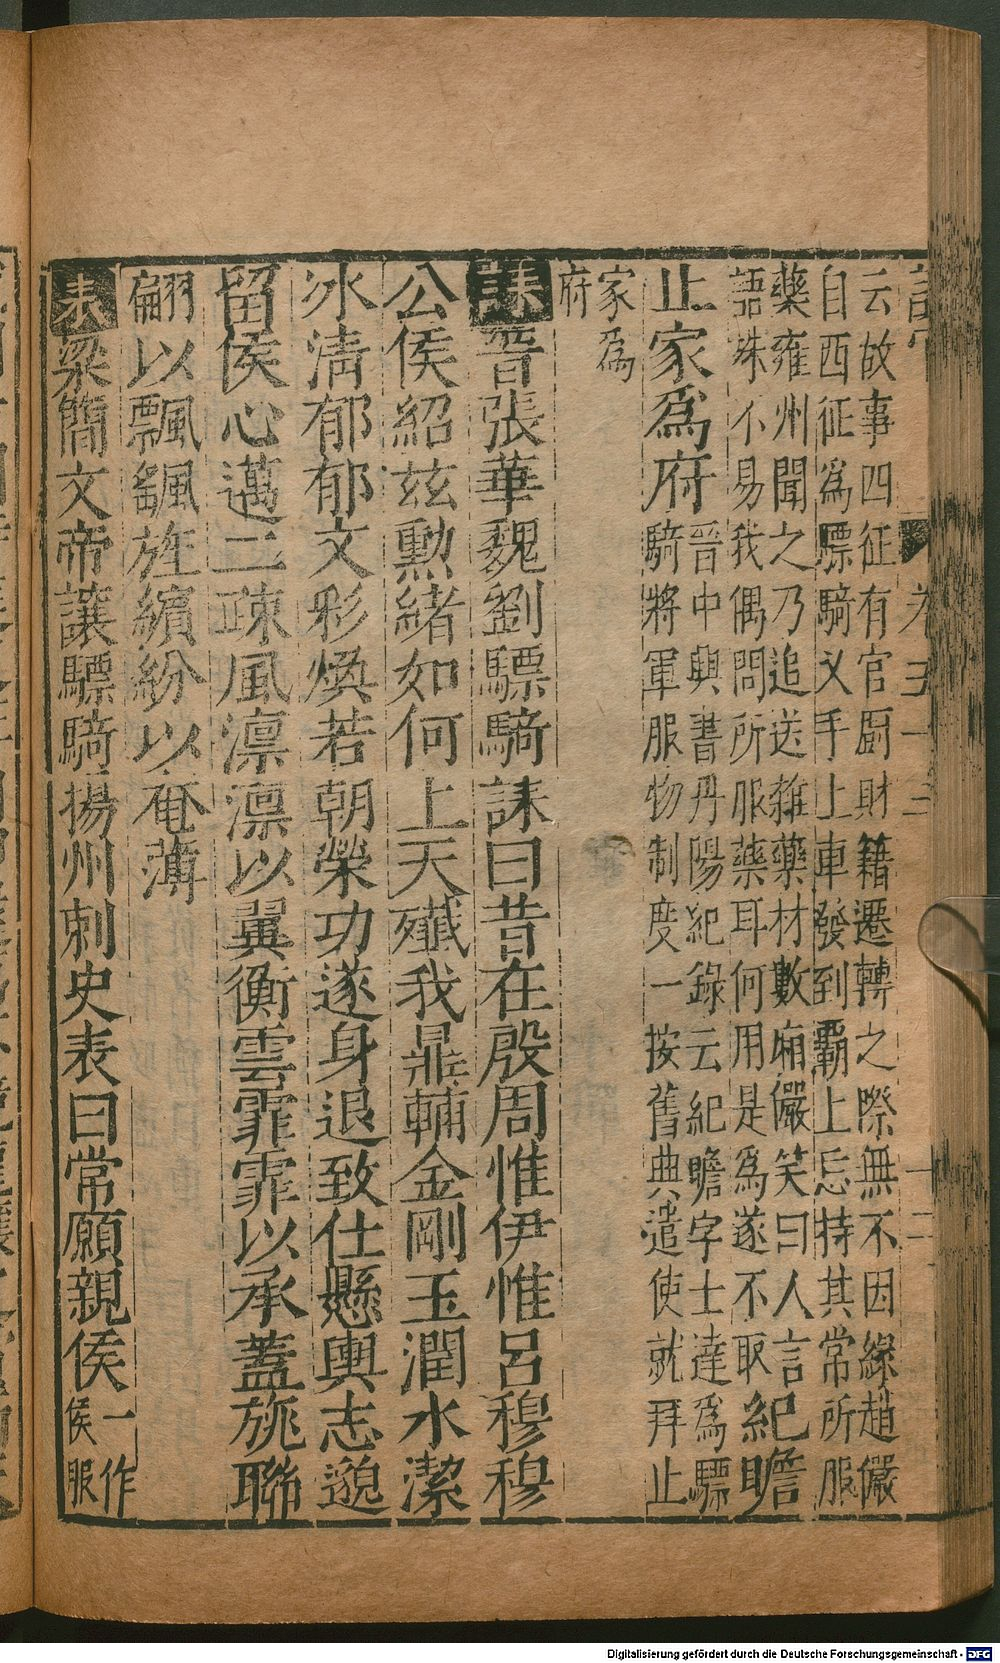 云故事四征有官厨財籍遷轉之際無不因緣趙儼
自西征為驃騎乂手上車發到覇上忘持其常所服
藥雍州聞之乃追送雜藥材數廂儼笑曰人言
語殊不易我偶問所服藥耳何用是為遂不取 紀瞻
止家為府 晋中興書丹陽紀錄云紀瞻字士達為驃
騎將軍服物制度一按舊典遣使就拜止
家為
府
誄晋張華魏劉驃騎誄曰昔在殷周惟伊惟呂穆穆
公侯紹兹勲緒如何上天殲我鼎輔金剛玉潤水潔
冰清郁郁文彩煥若朝榮功遂身退致仕懸輿志邈
留侯心邁二疎風凛凛以翼衡雲霏霏以承蓋旐聯
翩以飄颻旌繽紛以奄薄
表梁簡文帝讓驃騎揚州刺史表曰常願親侯 一作
侯服
Digitalisierung gefördert durch die Deutsche Forschungsgemeinschaft - DFG